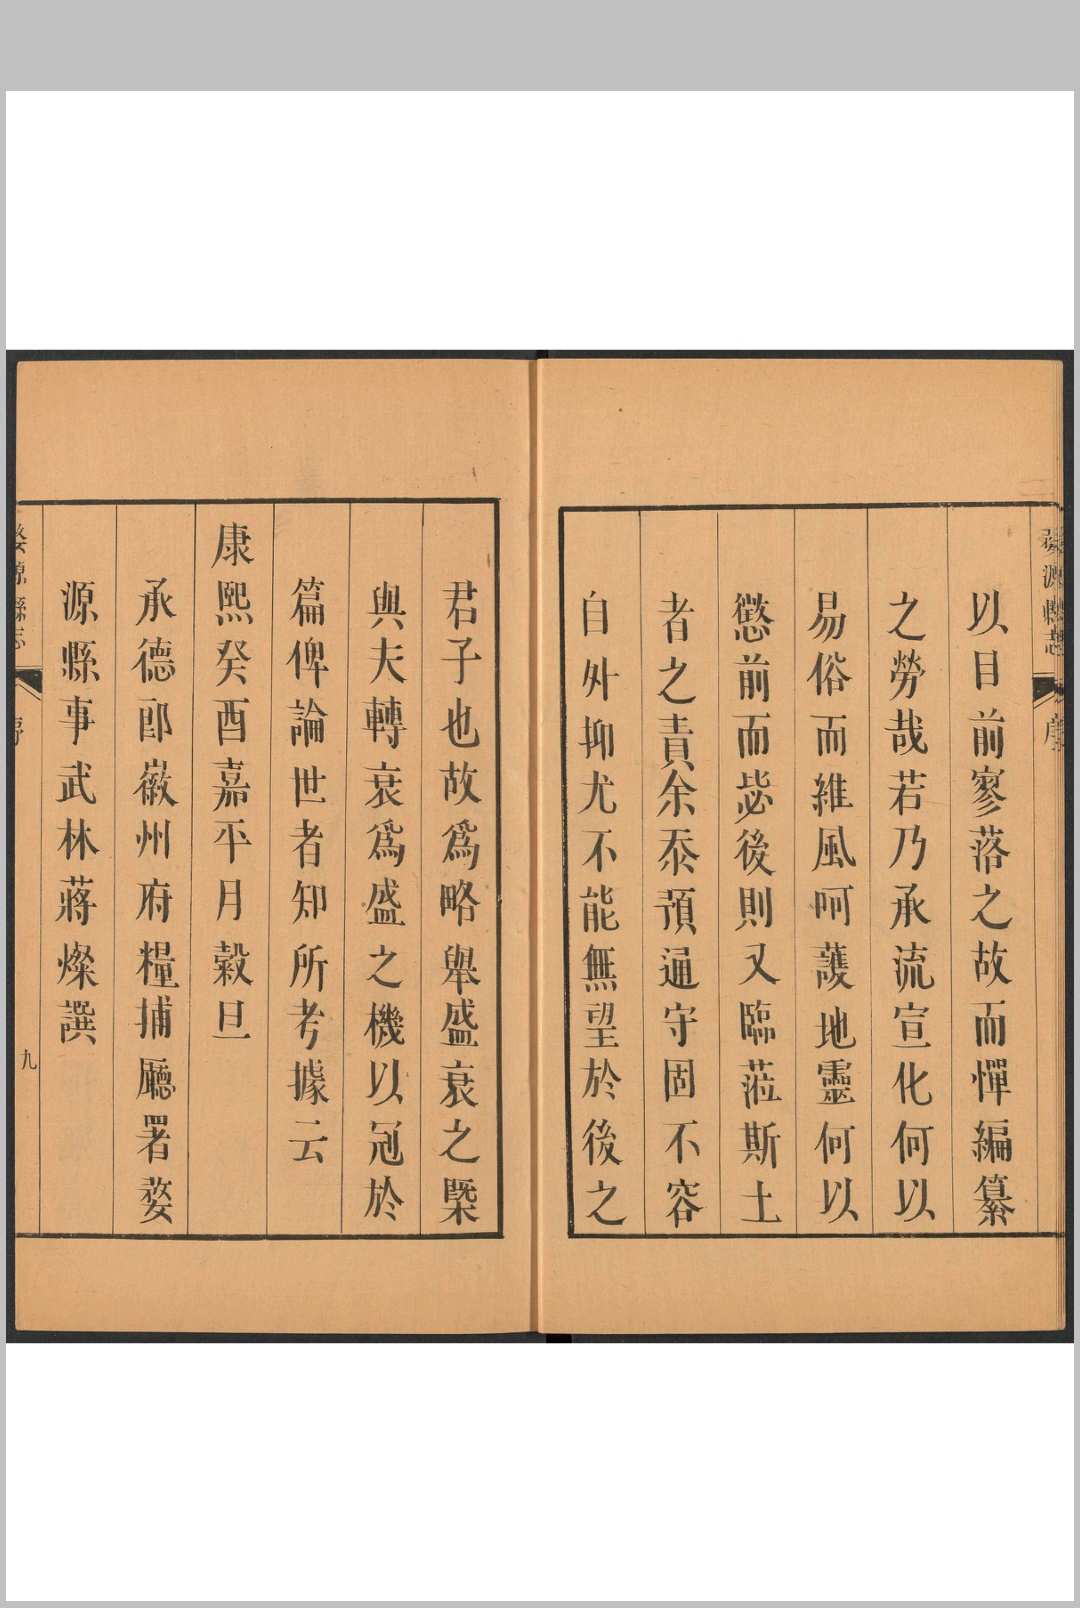 婺源縣志
序
以目前寥落之故而憚編纂
之勞哉若乃承流宣化何以
易俗而維風呵護地靈何以
懲前而毖後則又臨蒞斯土
者之責余忝預通守固不容
自外抑尤不能無望於後之
君子也故爲略舉盛衰之槩
與夫轉衰爲盛之機以冠於
篇俾論世者知所考據云
康熙癸酉嘉平月穀旦
承德郎徽州府糧捕廳署婺
源縣事武林蔣燦譔
婺源縣志
序
九